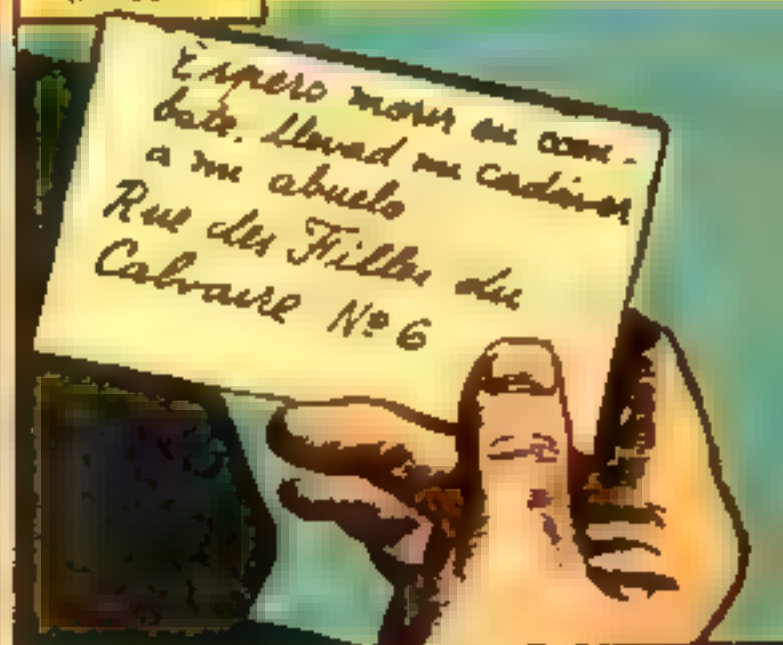 Espero morir en com-
bate. Llevad mi cadáver
a mi abuelo
Rue des Filles du
Calvaire Nº 6